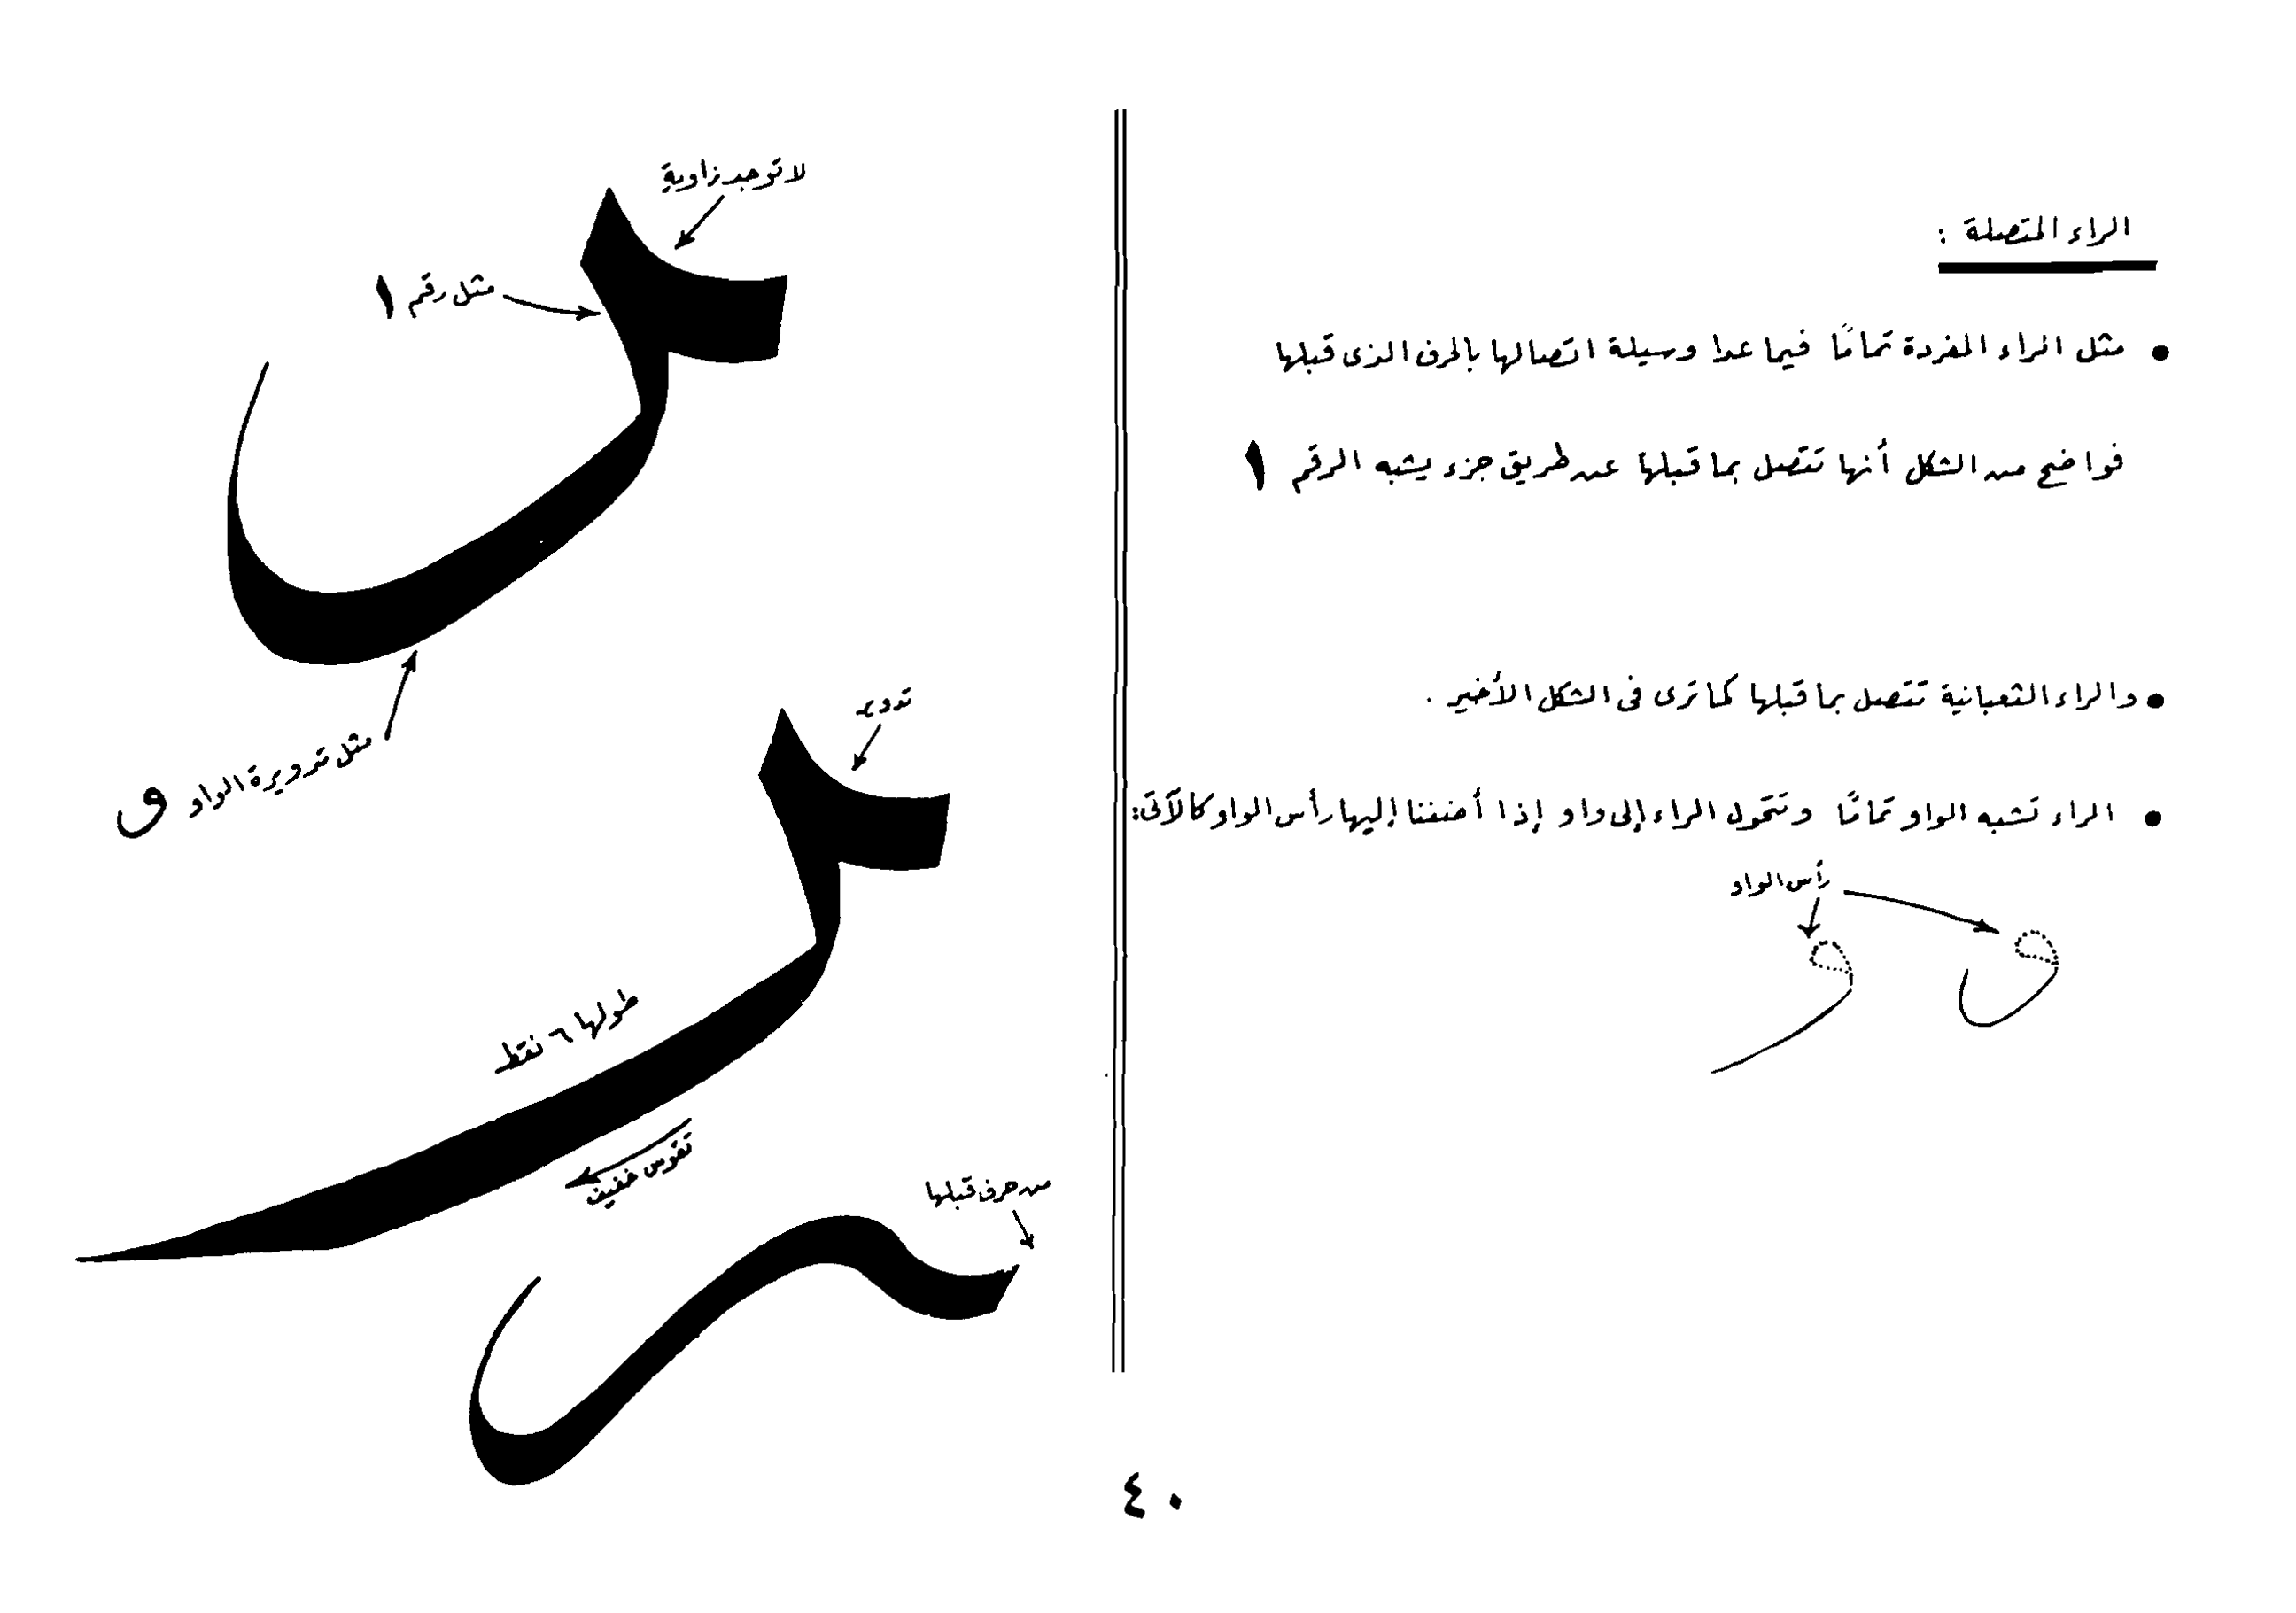 الراء المتصلة :
• مثل الراء المفردة تمامًا فيما عدا وسيلة اتصالها بالحرف الذى قبلها
فواضح من الشكل أنها تتصل بما قبلها عن طريق جزء يشبه الرقم ١
• والراء الثعبانية تتصل بما قبلها كما ترى فى الشكل الأخير .
• الراء تشبه الواو تمامًا وتتحول الراء إلى واو إذا أضفنا إليها رأس الواو كالآتى:
رأس الواو
لا توجد زاوية
مثل رقم ١
مثل تدويرة الواو و
تدوير
طولها ٦ نقط
تقوس خفيف
من حرف قبلها
٤٠